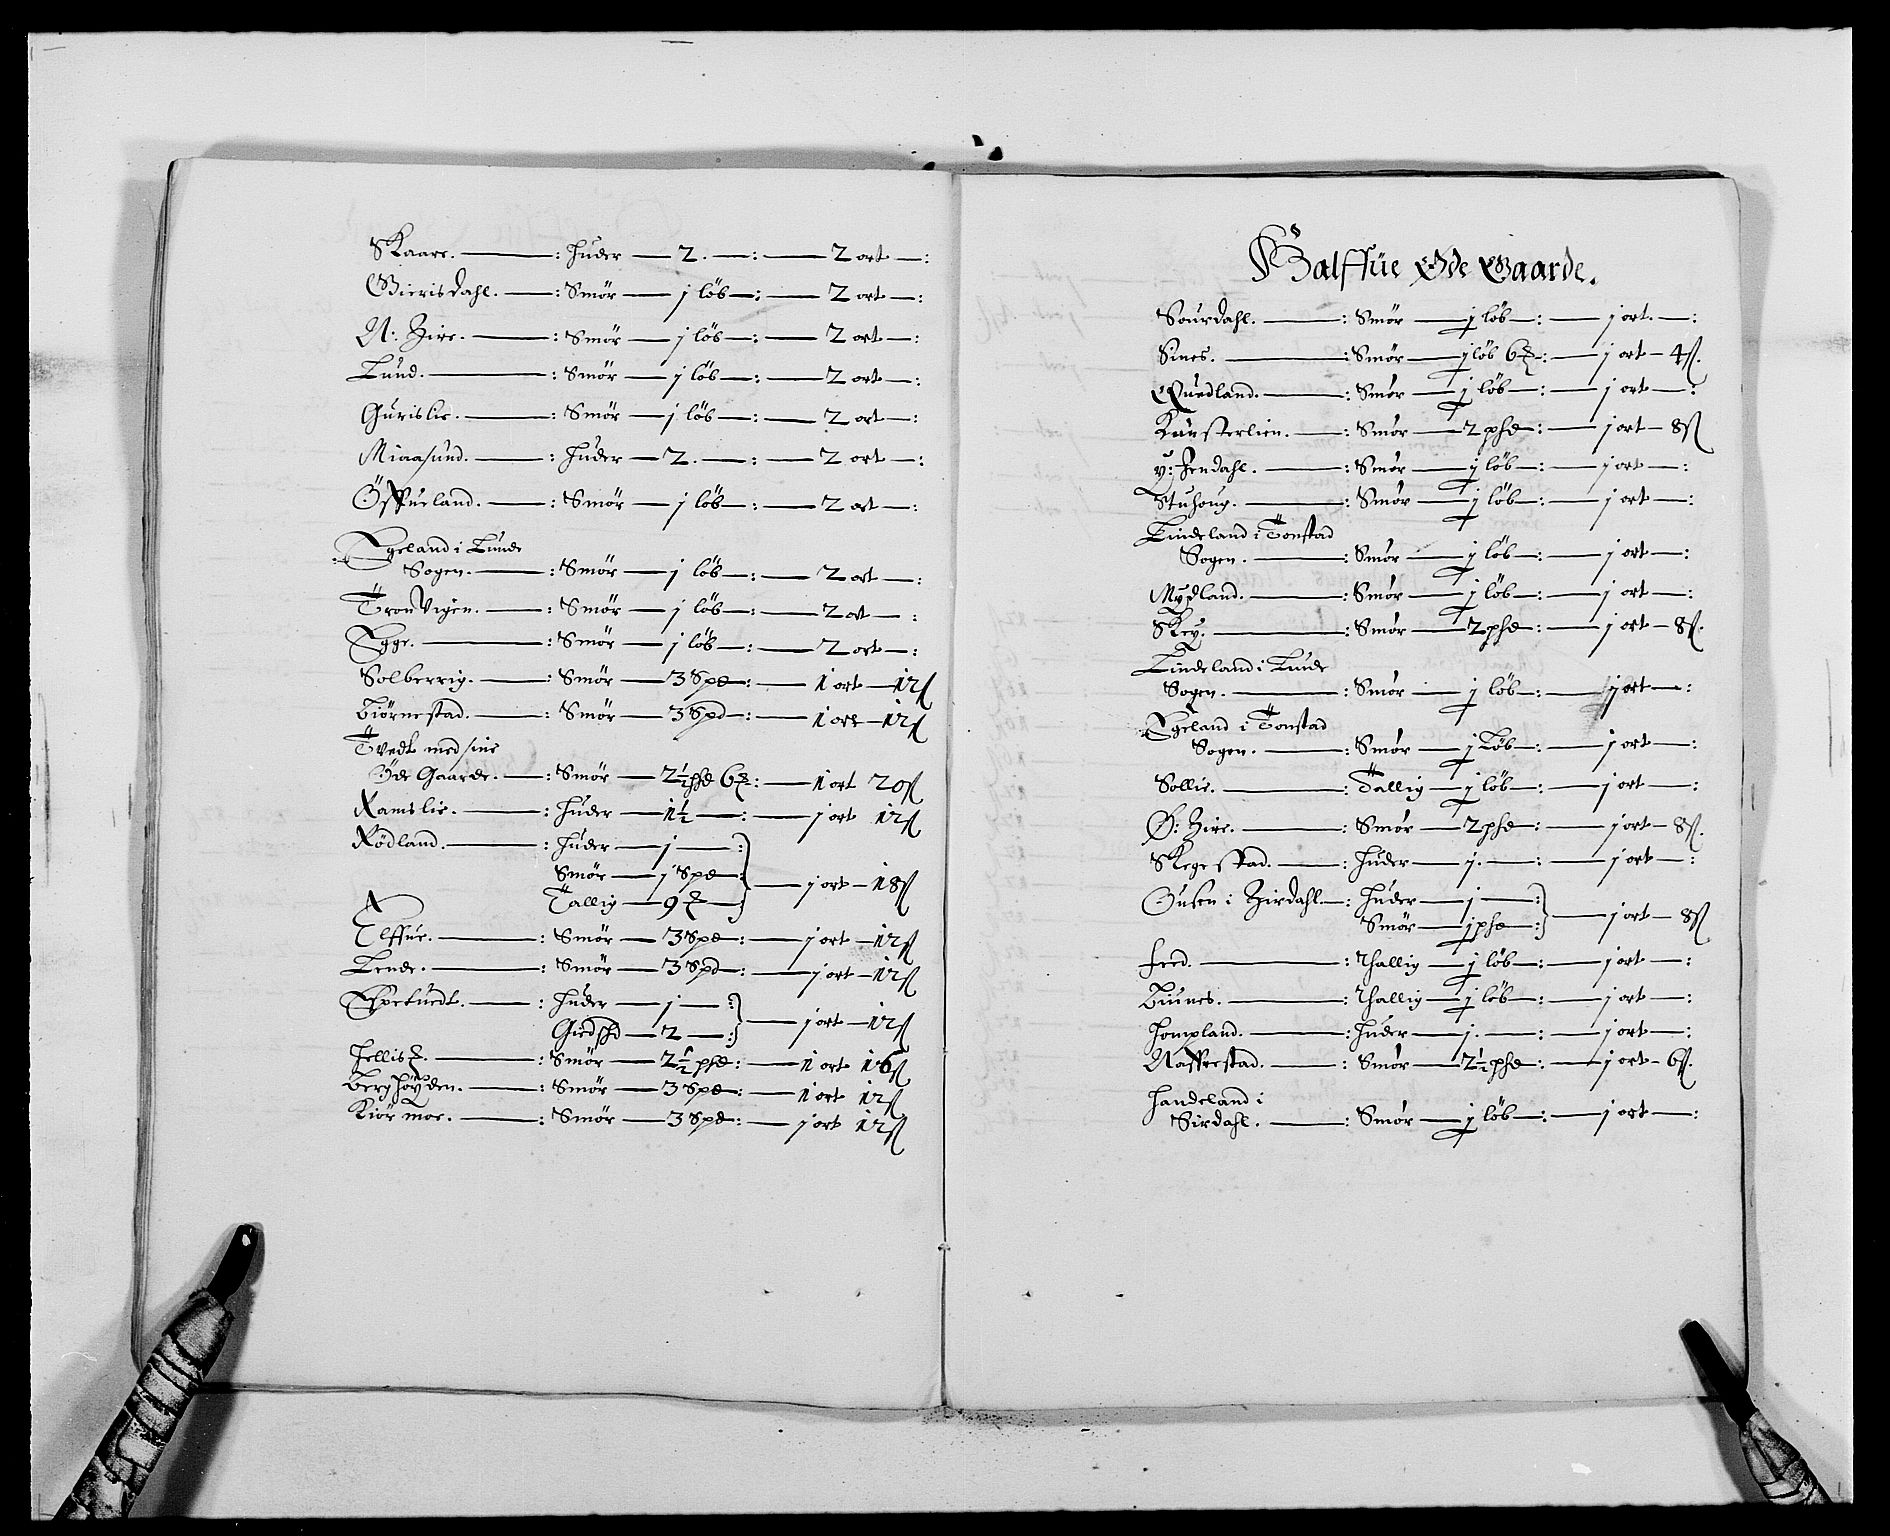 Skaare. — : huder — 2. — : — 2 ort — :
Gierisdahl. — : Smör — j löb — : — 2 ort — :
N: Zire. — : Smör — j löb — : — 2 ort — :
Lund. — : Smör — j löb — : — 2 ort — :
Gurislie. — : Smör — j löb — : — 2 ort — :
Miaasund. — : huder — 2. — : — 2 ort — :
Öffueland. — : Smör — j löb — : — 2 ort — :
Egeland i Lunde
Sogen. — : Smör — j löb — : — 2 ort — :
Tronvigen. — : Smör — j löb — : — 2 ort — :
Egge. — : Smör — j löb — : — 2 ort — :
Solberrig. — : Smör — 3 Spd — : — 1 ort — 12 ß
Biörnestad. — : Smör — 3 Spd — : — 1 ort — 12 ß
Tvedt med sine
Öde Gaarde. — : Smör — 2½ pfd 6 ℔ : — 1 ort 20 ß
Ramslie. — : huder — 1½ — : — j ort 12 ß
Rödland. — : huder — j — :
Smör — j Spd — : — j ort — 18 ß
Tallig — 9 ℔ — :
Elffue. — : Smör — 3 Spd — : — j ort — 12 ß
Lende. — : Smör — 3 Spd — : — j ort — 12 ß
Espetuedt. — : huder — j — : — j ort — 12 ß
Giedshd — 2 — :
Fellis — : Smör — 2½ pfd — : — 1 ort 16 ß
Berghöyden. — : Smör — 3 Spd — : — 1 ort 12 ß
Kiörmoe. — : Smör — 3 Spd — : — j ort 12 ß
Halffue Öde Gaarde.
Sourdahl. — : Smör — j löb — : — j ort. — :
Sines. — : Smör — j löb 6 ℔ — : — j ort — 4 ß.
Quedland. — : Smör — j löb — : — j ort — :
Kunsterlien. — : Smör — 2 pfd — : — j ort — 8 ß
y: Jendahl. — : Smör — j löb — : — j ort — :
Stuhoug. — : Smör — j löb — : — j ort — :
Lindeland i Tonstad
Sogen. — : Smör — j löb — : — j ort — :
Mydland. — : Smör — j löb — : — j ort — :
Skey. — : Smör — 2 pfd — : — j ort — 8 ß.
Lindeland i Lunde
Sogen. — : Smör — j löb — : — j ort — :
Egeland i Tonstad
Sogen. — : Smör — j Löb — : — j ort — :
Sollie. — : Tallig — j löb — : — j ort — :
Ö: Zire. — : Smör — 2 pfd — : — j ort — 8 ß.
Skegestad. — : huder — j. — : — j ort — :
Ousen i Zirdahl. — : huder — j — :
Smör — j pfd — : — j ort — 8 ß
Feed. — : Thallig — j löb — : — j ort — :
Liunes. — : Thallig — j löb — : — j ort — :
Hompland. — : huder — j. — : — j ort — :
Naffrestad. — : Smör — 2½ pfd — : — j ort — 6 ß.
Handeland i
Sirdahl. — : Smör — j löb — : — j ort — :